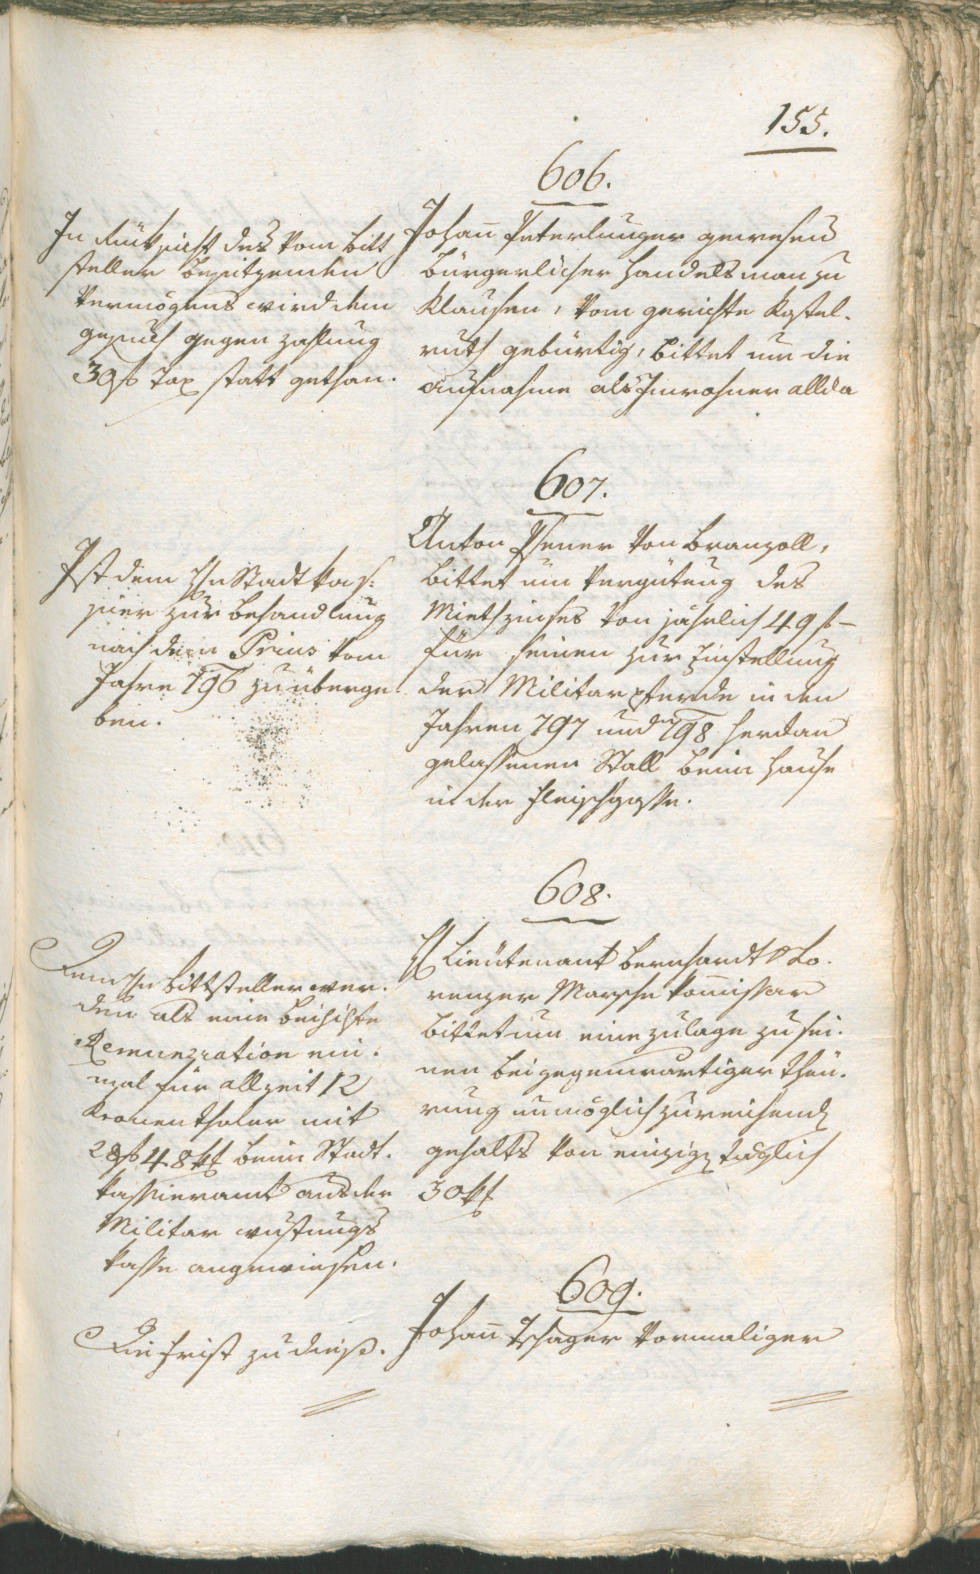 155.
606.
In Rücksicht des vom Bitt
steller besitzenden
Vermögens wird dem
gesuch gegen zahlung
30 f Tax statt gethan.
Johañ Peterlunger gewesend
bürgerlicher Handelsman zu
Klausen, vom gerichte Kastel-
ruth gebürtig, bittet um die
Aufnahme als Inwohner allda
607.
Ist dem Hn Stadtkas-
sier zur behandlung
nach dem Prius vom
Jahre 796 zu überge
ben.
Anton von Branzoll,
bittet um Vergütung des
Miethzinses von jährlich 49 f –
für seinen zur Einstellung
der Militarpferde in den
Jahren 797 und 798
gelassenen Stall beim Hause
in der Fleischgasse.
608.
Dem Hn Bittsteller wer-
den als eine
Remuneration ein-
mal für allzeit 12
Kronenthaler mit
28 f 48 kr beim Stadt-
kassieramt aus der
Militar
kasse angewiesen.
H Lieutenant Bernhardt Lo-
renzer Marsche Kom̃issar
bittet um eine zulage zu sei-
nen bei gegenwärtiger Theu-
rung unmöglich zureichend
gehalts von einzig täglich
30 kr
609.
Die Frist zu dieß.
Johañ Tschager vormaliger